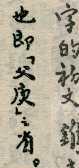 字的初文雖
也即「父庚」之省。